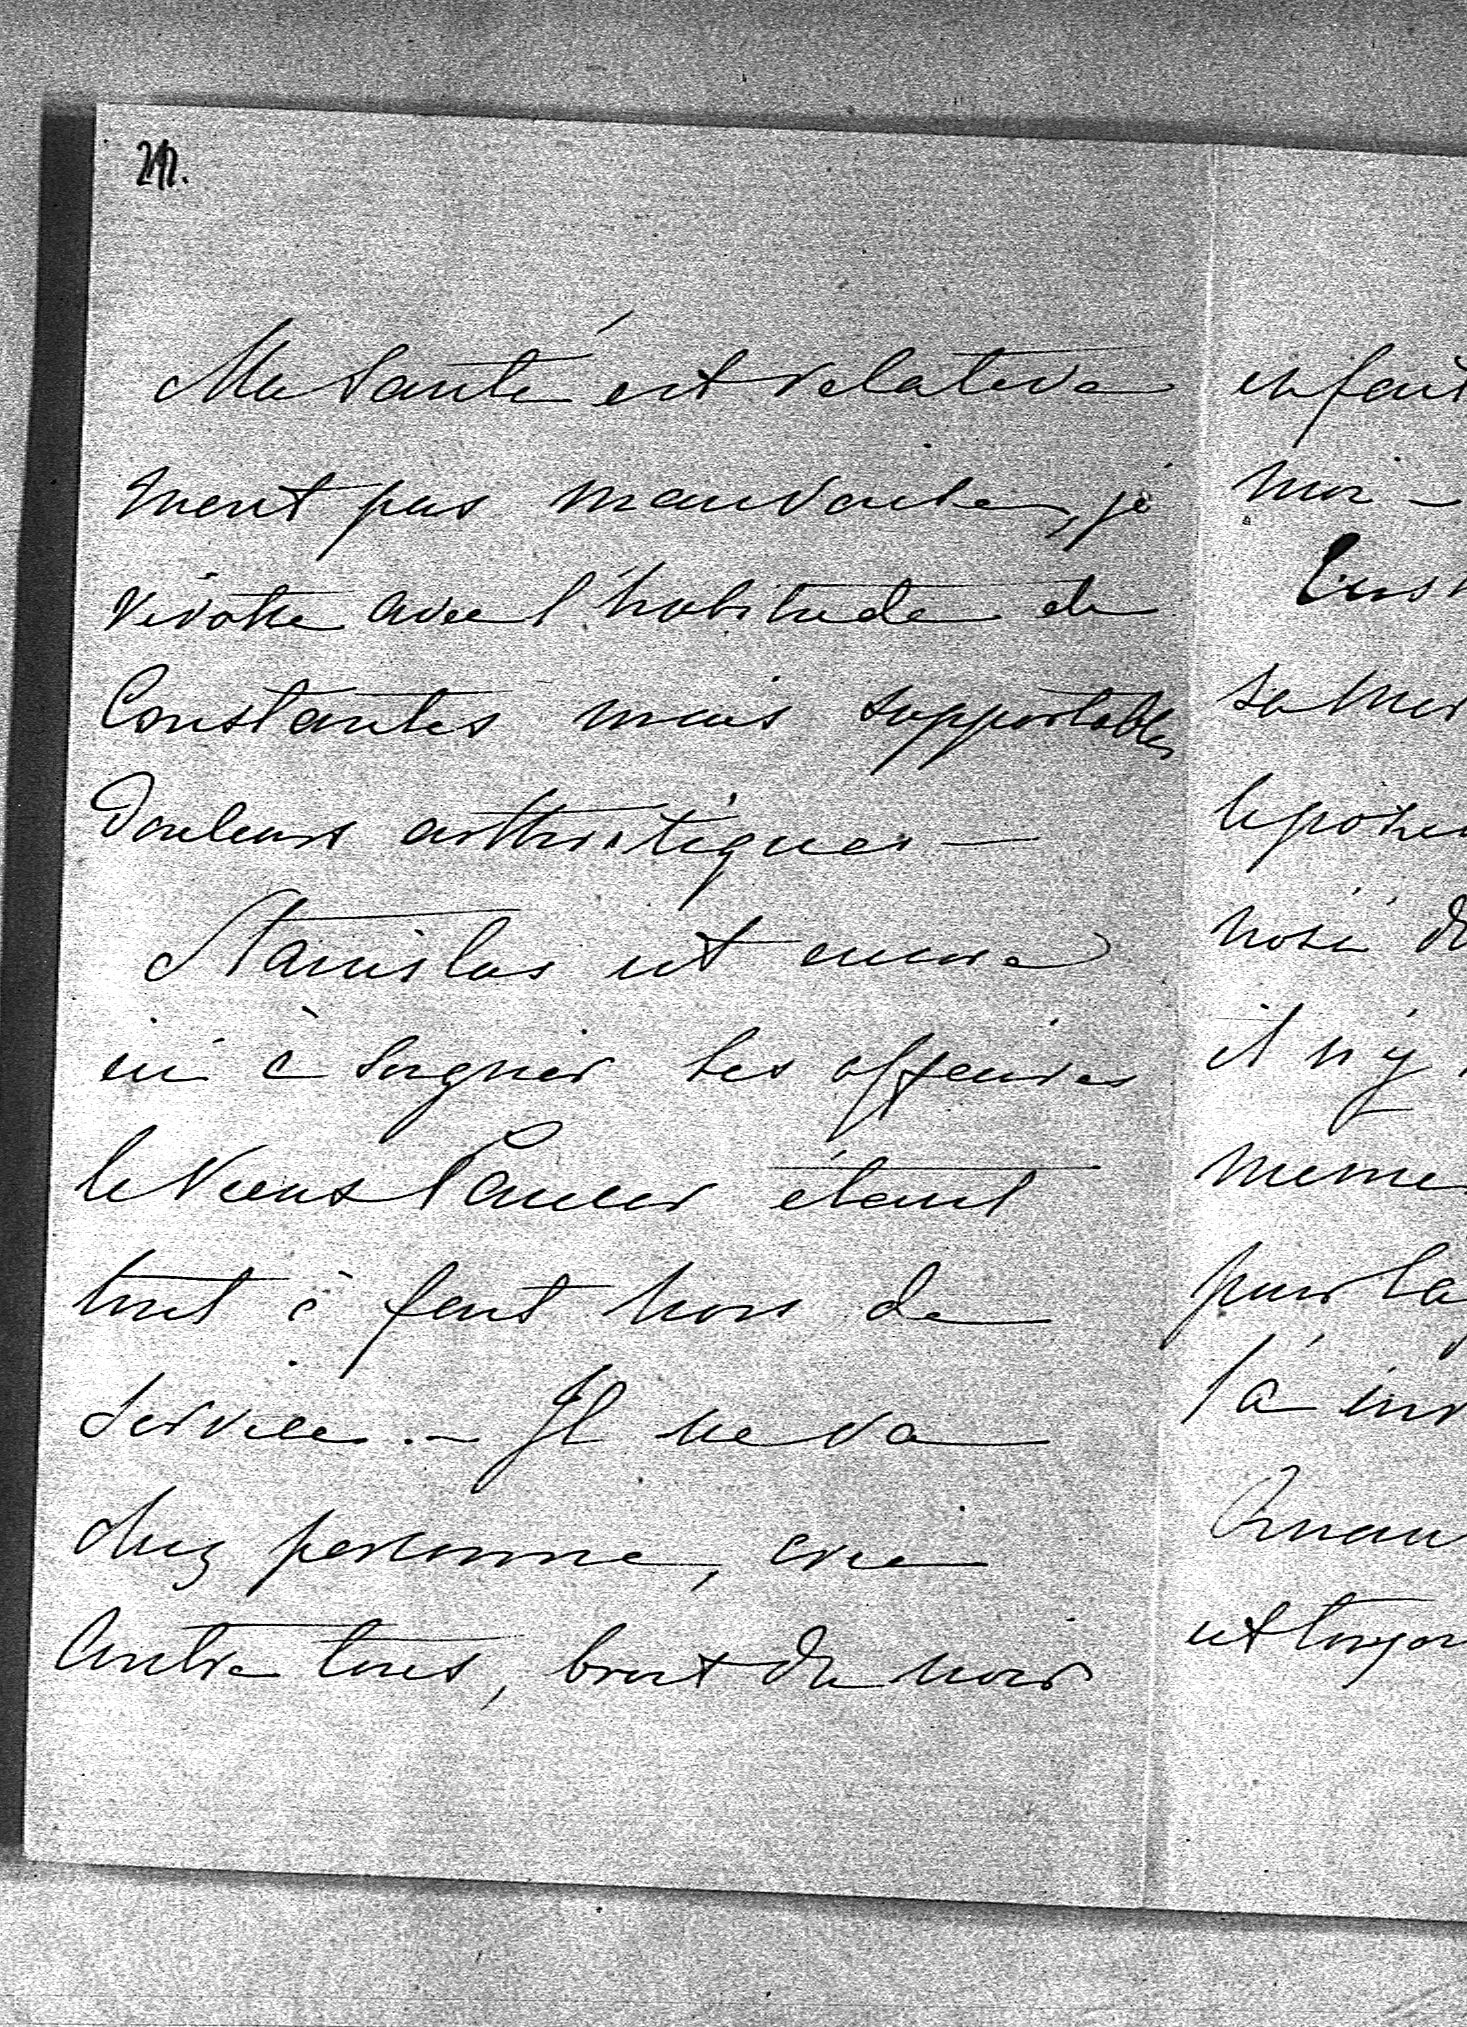 Ma santé est relative
ment pas mauvaise, je
vivotte avec l'habitude de
constantes mais supportables
douleurs arthritiques —
Stanislas est encore
ici à soigner ses affaires
le vieux étant
tout à fait hors de
service. — Il ne va
chez personne, crie
contre tous, broit du noir
en fait
moi —
sa mer
il n'y
meme
pour la
est toujou